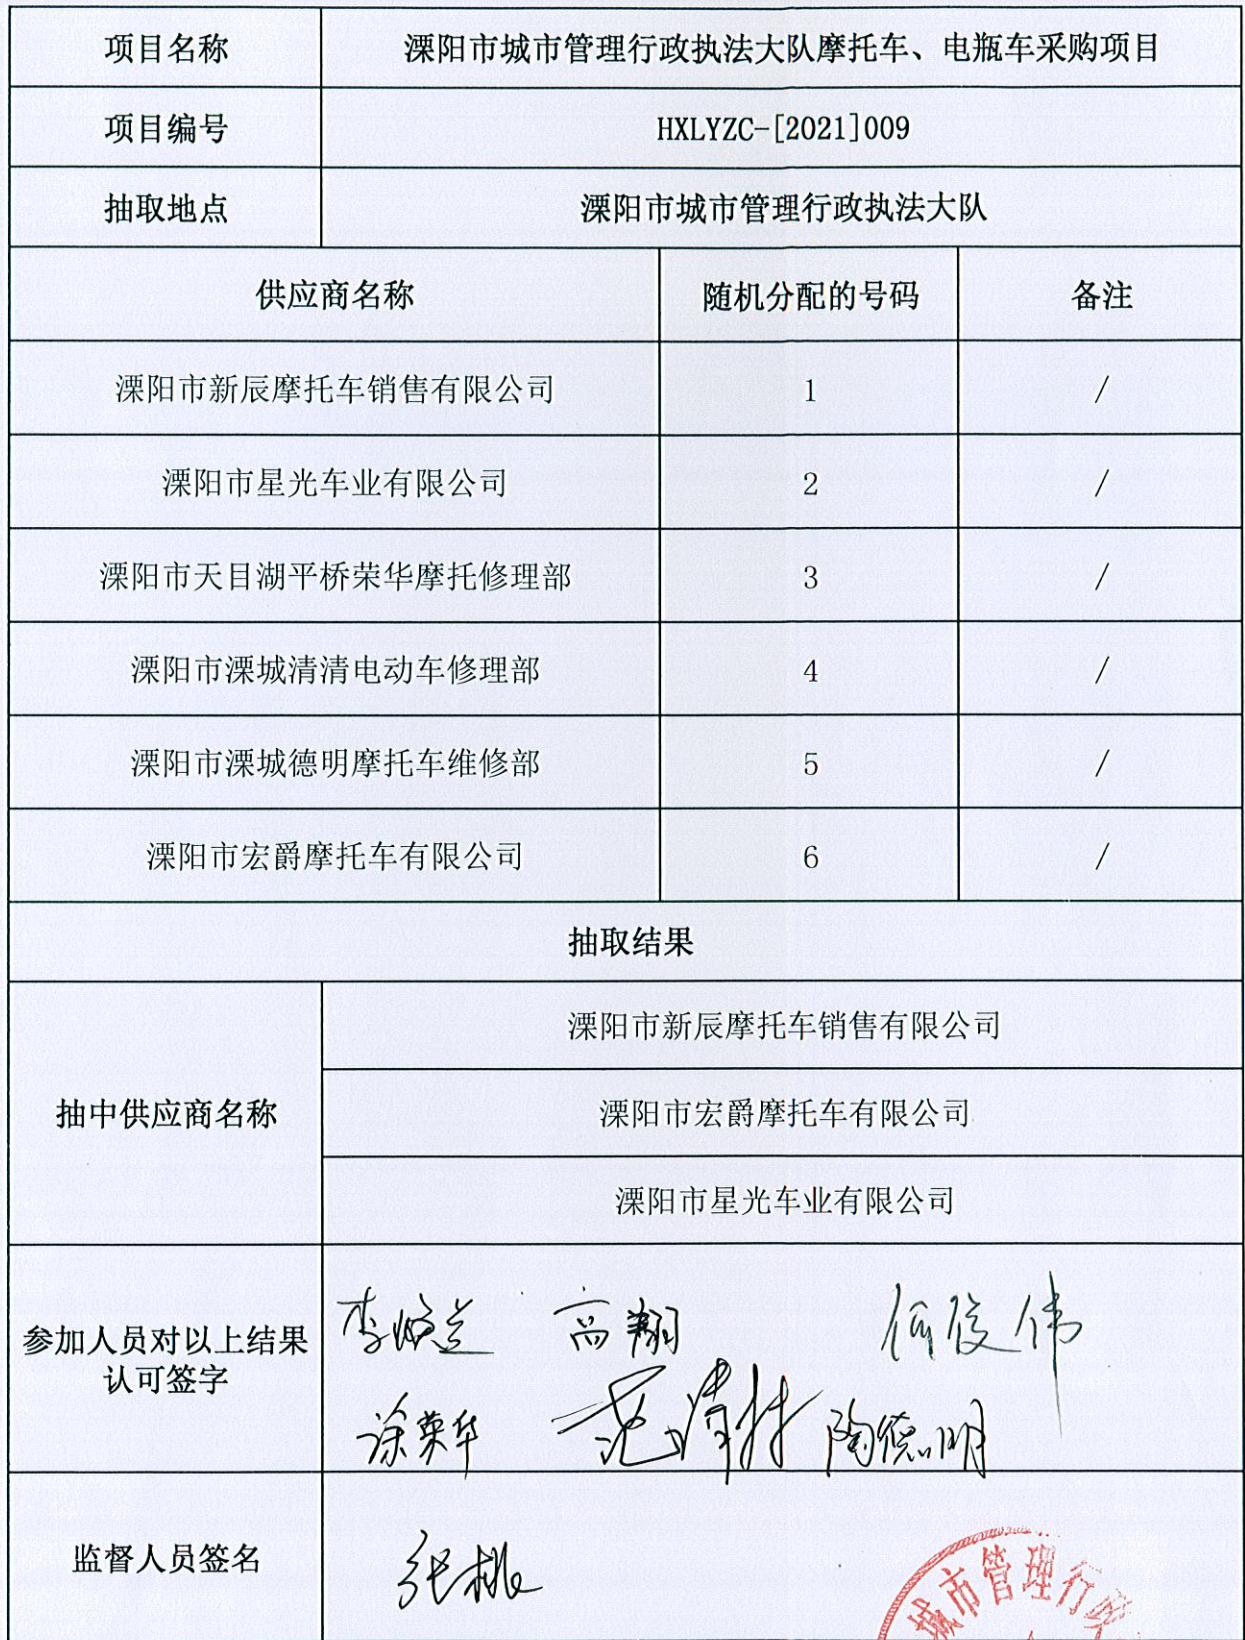 项目名称 溧阳市城市管理行政执法大队摩托车、电瓶车采购项目
项目编号 HXLYZC-[2021]009
抽取地点 溧阳市城市管理行政执法大队
供应商名称 随机分配的号码 备注
溧阳市新辰摩托车销售有限公司 1 /
溧阳市星光车业有限公司 2 /
溧阳市天目湖平桥荣华摩托修理部 3 /
溧阳市溧城清清电动车修理部 4 /
溧阳市溧城德明摩托车维修部 5 /
溧阳市宏爵摩托车有限公司 6 /
抽取结果
抽中供应商名称
溧阳市新辰摩托车销售有限公司
溧阳市宏爵摩托车有限公司
溧阳市星光车业有限公司
参加人员对以上结果
认可签字
高翔 何俊伟
涂荣华 陶德明
监督人员签名 张桃
城市管理行政